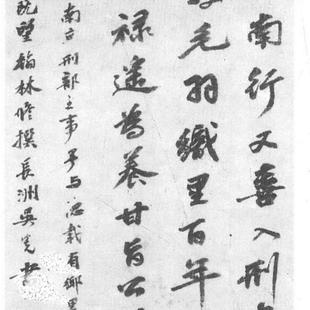 南行又喜入刑
毛羽織里百年
祿遂為養甘旨公
南京刑部主事予與
載有鄉里
既望翰林修撰長洲吳寬書